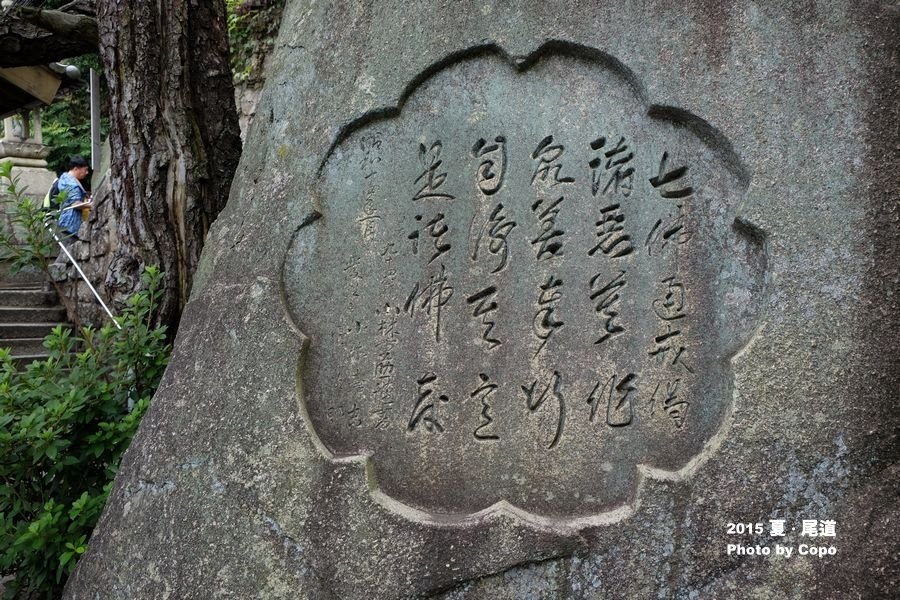 七佛通戒偈
諸惡莫作
衆善奉行
自淨其意
是諸佛教
2015 夏 · 尾道
Photo by Copo